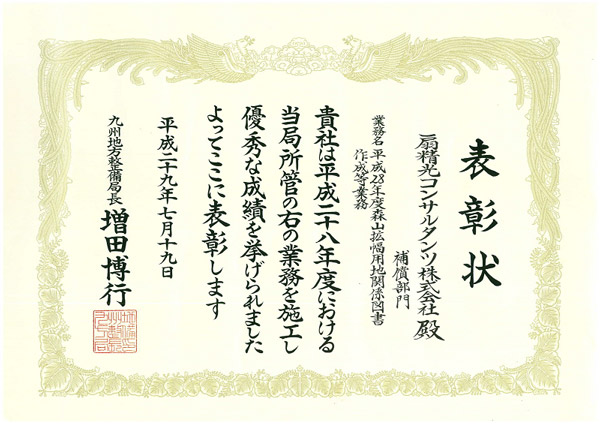 表彰状
扇精光コンサルタンツ株式会社 殿
補償部門
業務名 平成28年度森山拡幅用地関係図書
作成等業務
貴社は平成二十八年度における
当局所管の右の業務を施工し
優秀な成績を挙げられました
よってここに表彰します
平成二十九年七月十九日
九州地方整備局長 増田博行